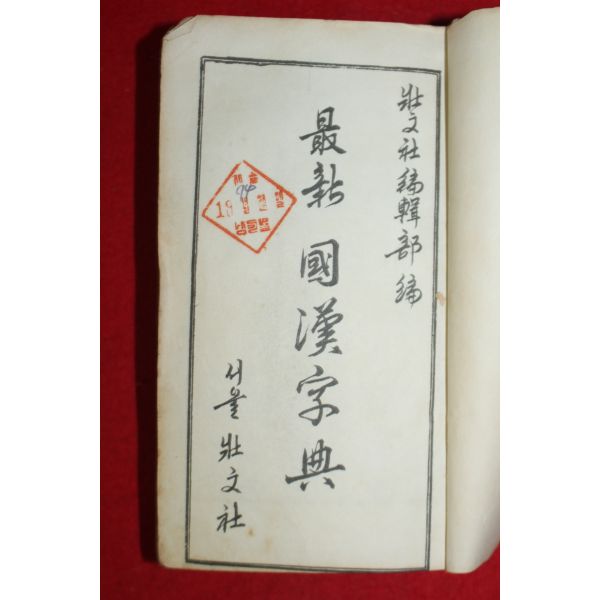 壯文社 編輯部 編
最新 國漢字典
서울 壯文社